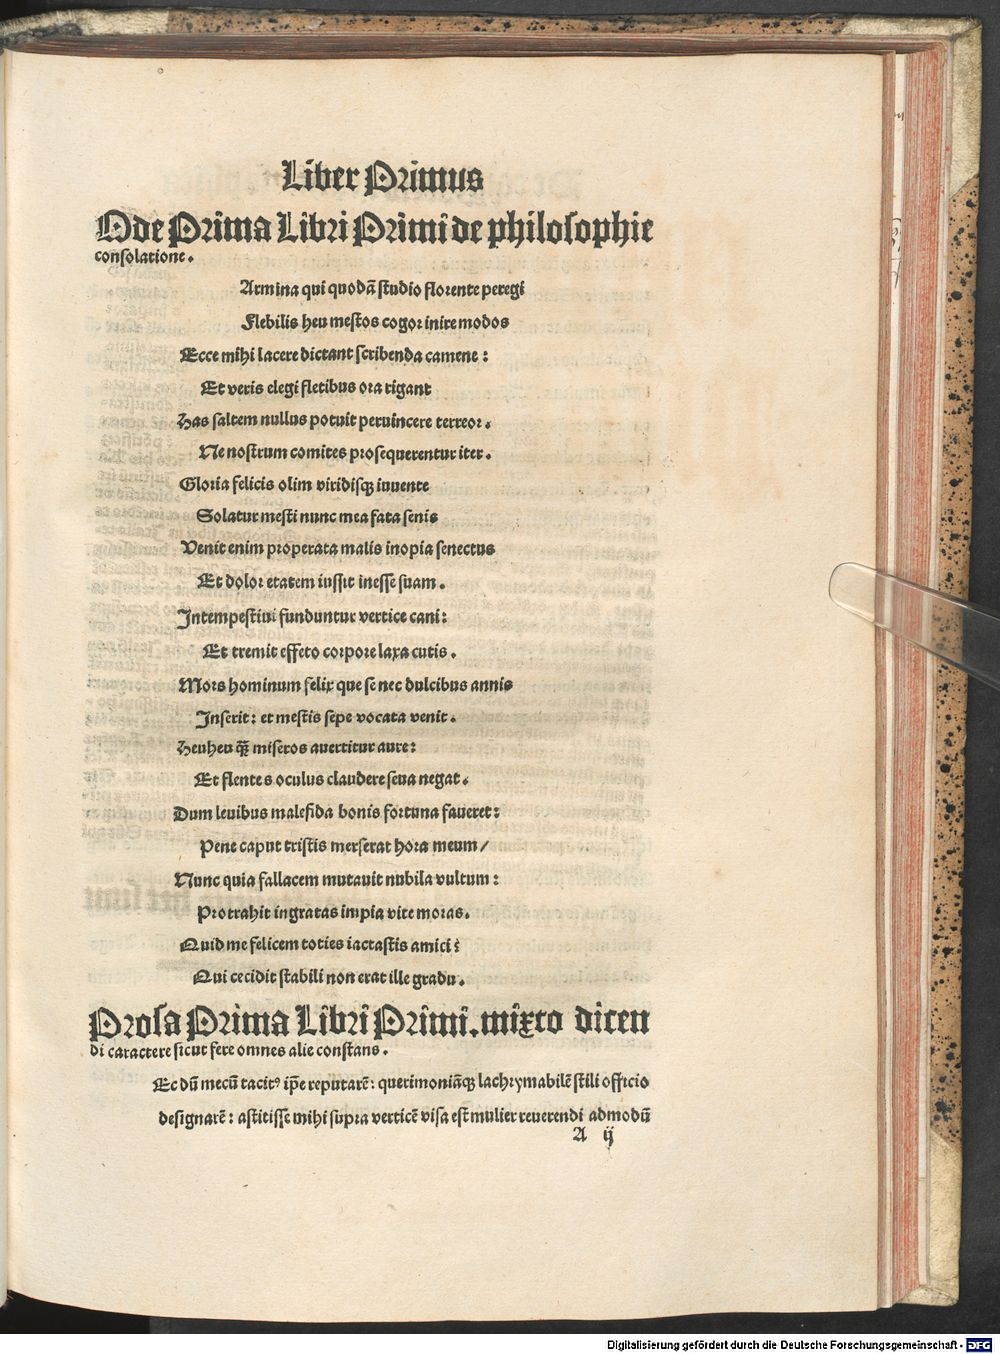 Liber Primus
Ode Prima Libri Primi de philosophie
consolatione.
Armina qui quodā studio florente peregi
Flebilis heu mestos cogor inire modos
Ecce mihi lacere dictant scribenda camene:
Et veris elegi fletibus ora rigant
Has saltem nullus potuit peruincere terreor.
Ne nostrum comites prosequerentur iter.
Gloria felicis olim viridisqꝫ iuuente
Solatur mesti nunc mea fata senis
Venit enim properata malis inopia senectus
Et dolor etatem iussit inesse suam.
Intempestiui funduntur vertice cani:
Et tremit effeto corpore laxa cutis.
Mors hominum felix que se nec dulcibus annis
Inserit: et mestis sepe vocata venit.
Heuheu qꝫ̄ miseros auertitur aure:
Et flentes oculus claudere seua negat.
Dum leuibus malefida bonis fortuna faueret:
Pene caput tristis merserat hora meum/
Nunc quia fallacem mutauit nubila vultum:
Protrahit ingratas impia vite moras.
Quid me felicem toties iactastis amici?
Qui cecidit stabili non erat ille gradu.
Prosa Prima Libri Primi. mixto dicen
di caractere sicut fere omnes alie constans.
Ec dū mecū tacitꝰ ip̄e reputarē: querimoniāqꝫ lachrymabilē stili officio
designarē: astitisse mihi supra verticē visa est mulier reuerendi admodū
A ij
Digitalisierung gefördert durch die Deutsche Forschungsgemeinschaft - DFG